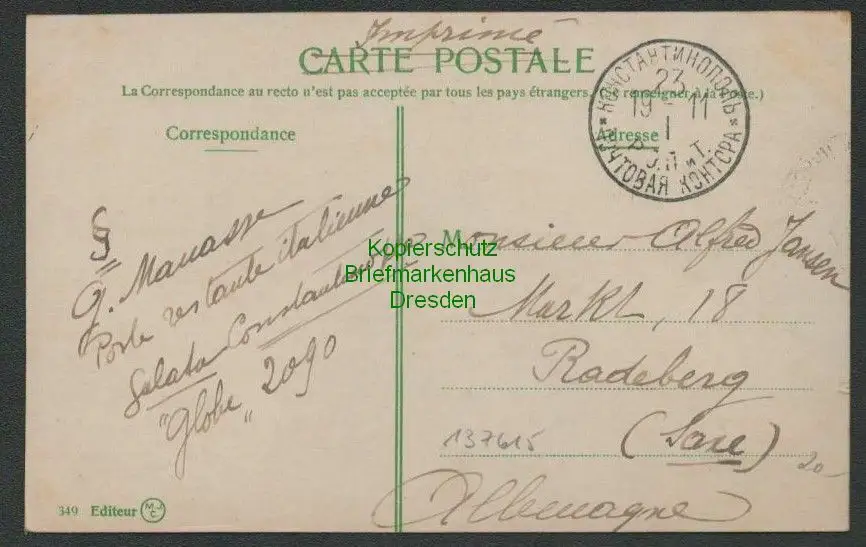 Imprimé
CARTE POSTALE
La Correspondance au recto n'est pas acceptée par tous les pays étrangers. (Se renseigner à la Poste.)
Correspondance
Adresse
КОНСТАНТИНОПОЛЬ
23
19 - 11
I
Р. О. П. и Т.
ПОЧТОВАЯ КОНТОРА
G. Manasse
Poste restante italienne
Galata Constantinople
"Globe" 2090
Monsieur Alfred Jansen
Markt, 18
Radeberg
(Saxe)
Allemagne
137615
20
Kopierschutz
Briefmarkenhaus
Dresden
349 Editeur MJC